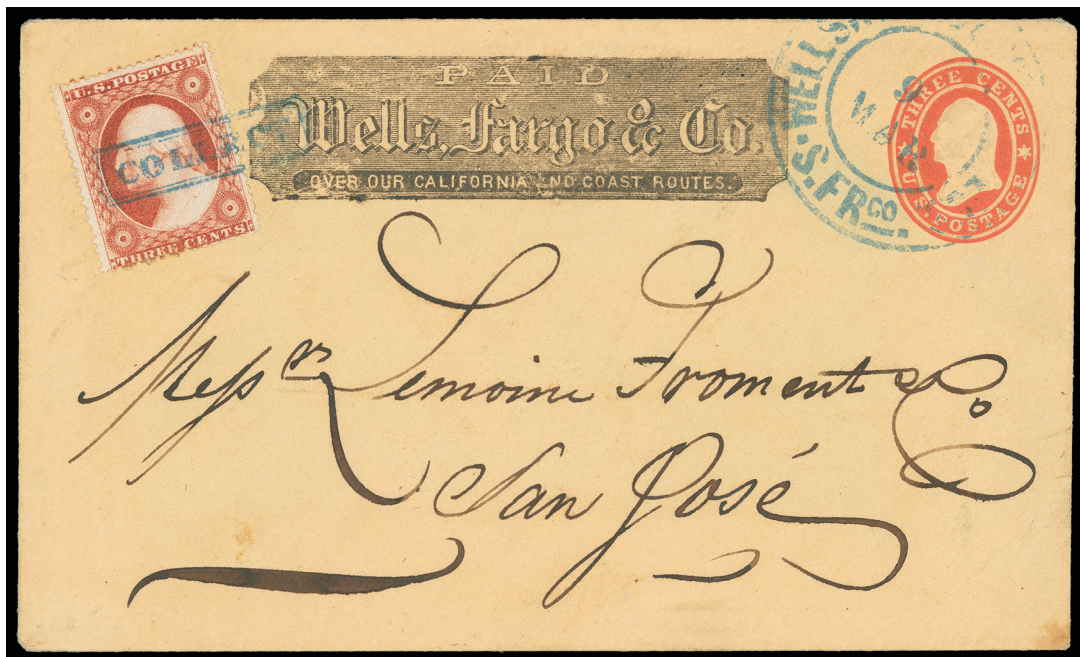 U.S. POSTAGE
THREE CENTS
COLLECT
PAID
Wells, Fargo & Co.
OVER OUR CALIFORNIA AND COAST ROUTES.
WELLS,
9
MAR
S. FRco
THREE CENTS
U.S. POSTAGE
Messrs Lemoine Froment & Co
San José